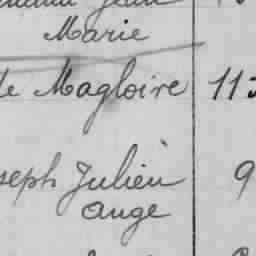 Marie
de Magloire 11
Joseph Julien 9
Ange